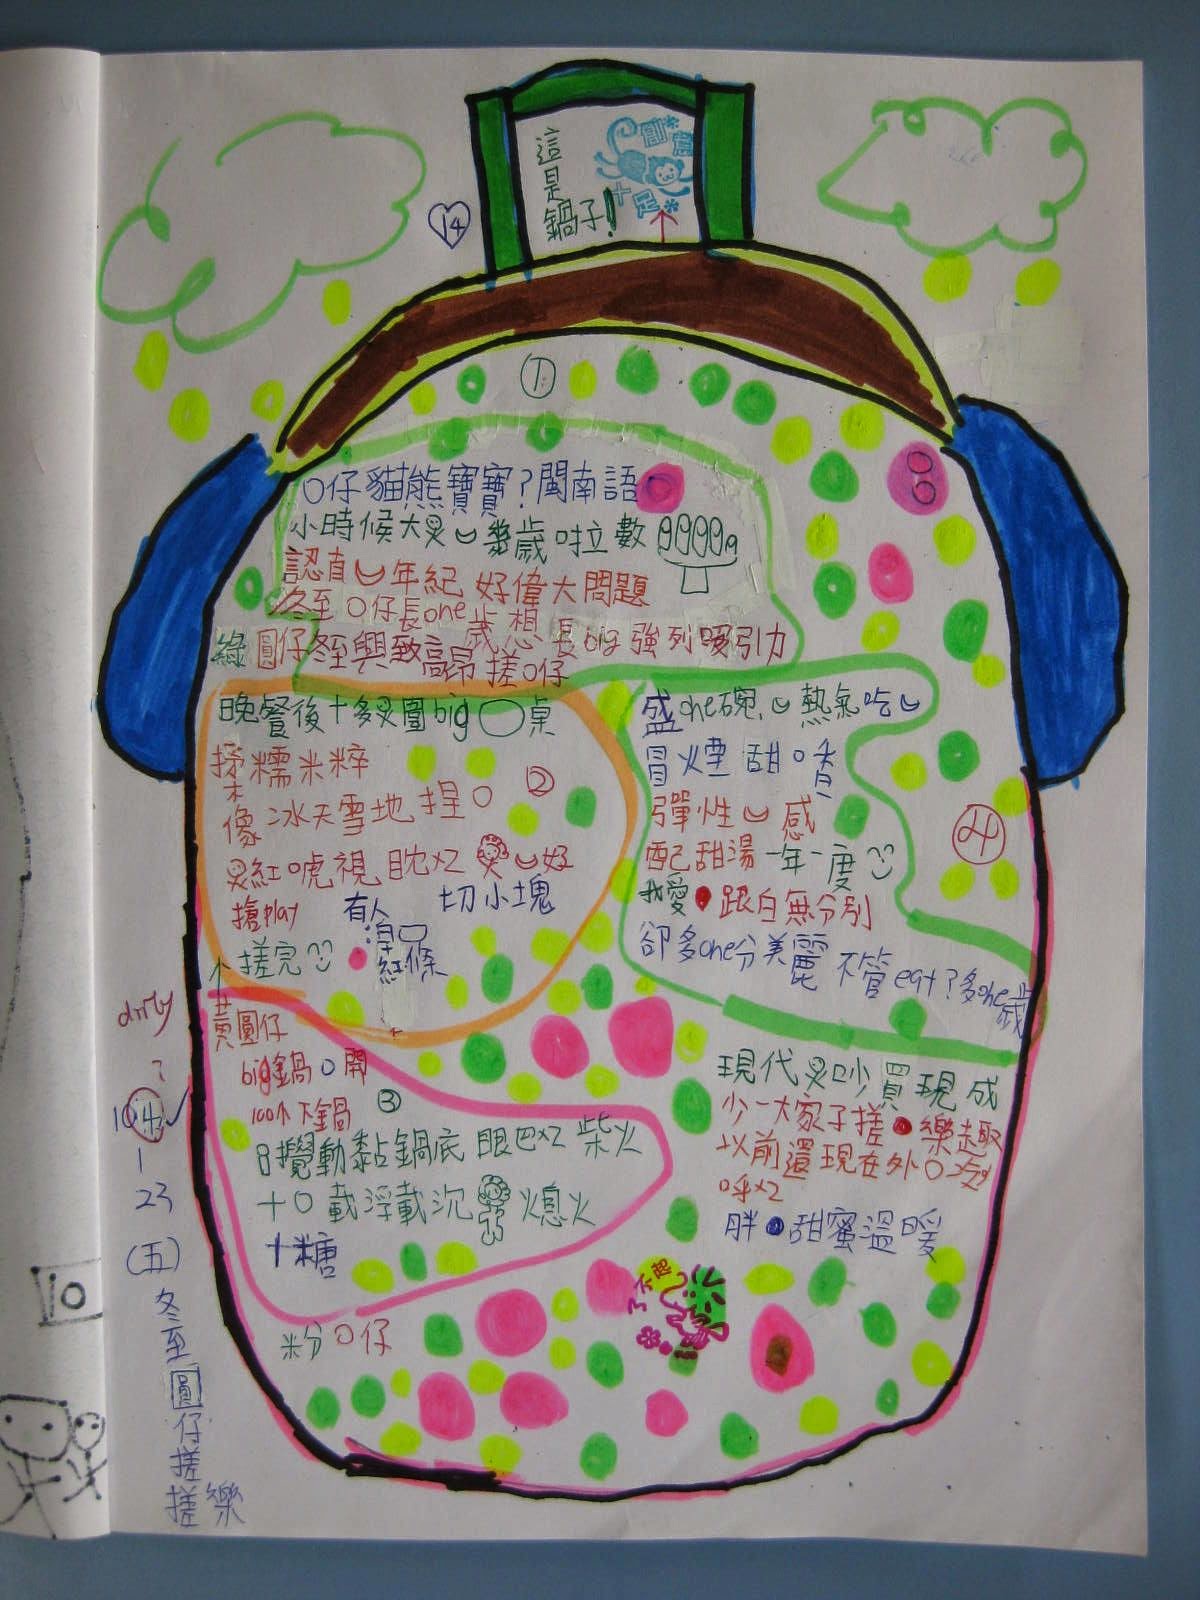 這是
鍋子!
創意
十足
14
1
仔貓熊寶寶?閩南語
小時候大 幾歲啦數
認真 年紀 好偉大問題
冬至 仔長one歲想 長big強列吸引力
綠圓仔冬至興致高昂搓 仔
晚餐後十多 圍big 桌
揉糯米粹
2
像冰天雪地捏
紅唬視眈x2 好
搶play 有人 切小塊
紅條
不搓完
黃圓仔
big鍋 開
100個下鍋 3
攪動黏鍋底 眼巴x2 柴火
載浮載沉 熄火
十糖
粉 仔
盛one碗 熱氣吃
冒煙甜
彈性 感
配甜湯一年一度
4
我愛 跟白無分別
卻多one分美麗 不管eat?多one歲
現代 吵買現成
少一大家子搓 樂趣
以前還現在外 吃
呼x2
胖 甜蜜溫暖
了不起
dirty
?
104
1
23
(五)
冬至圓仔搓搓樂
10